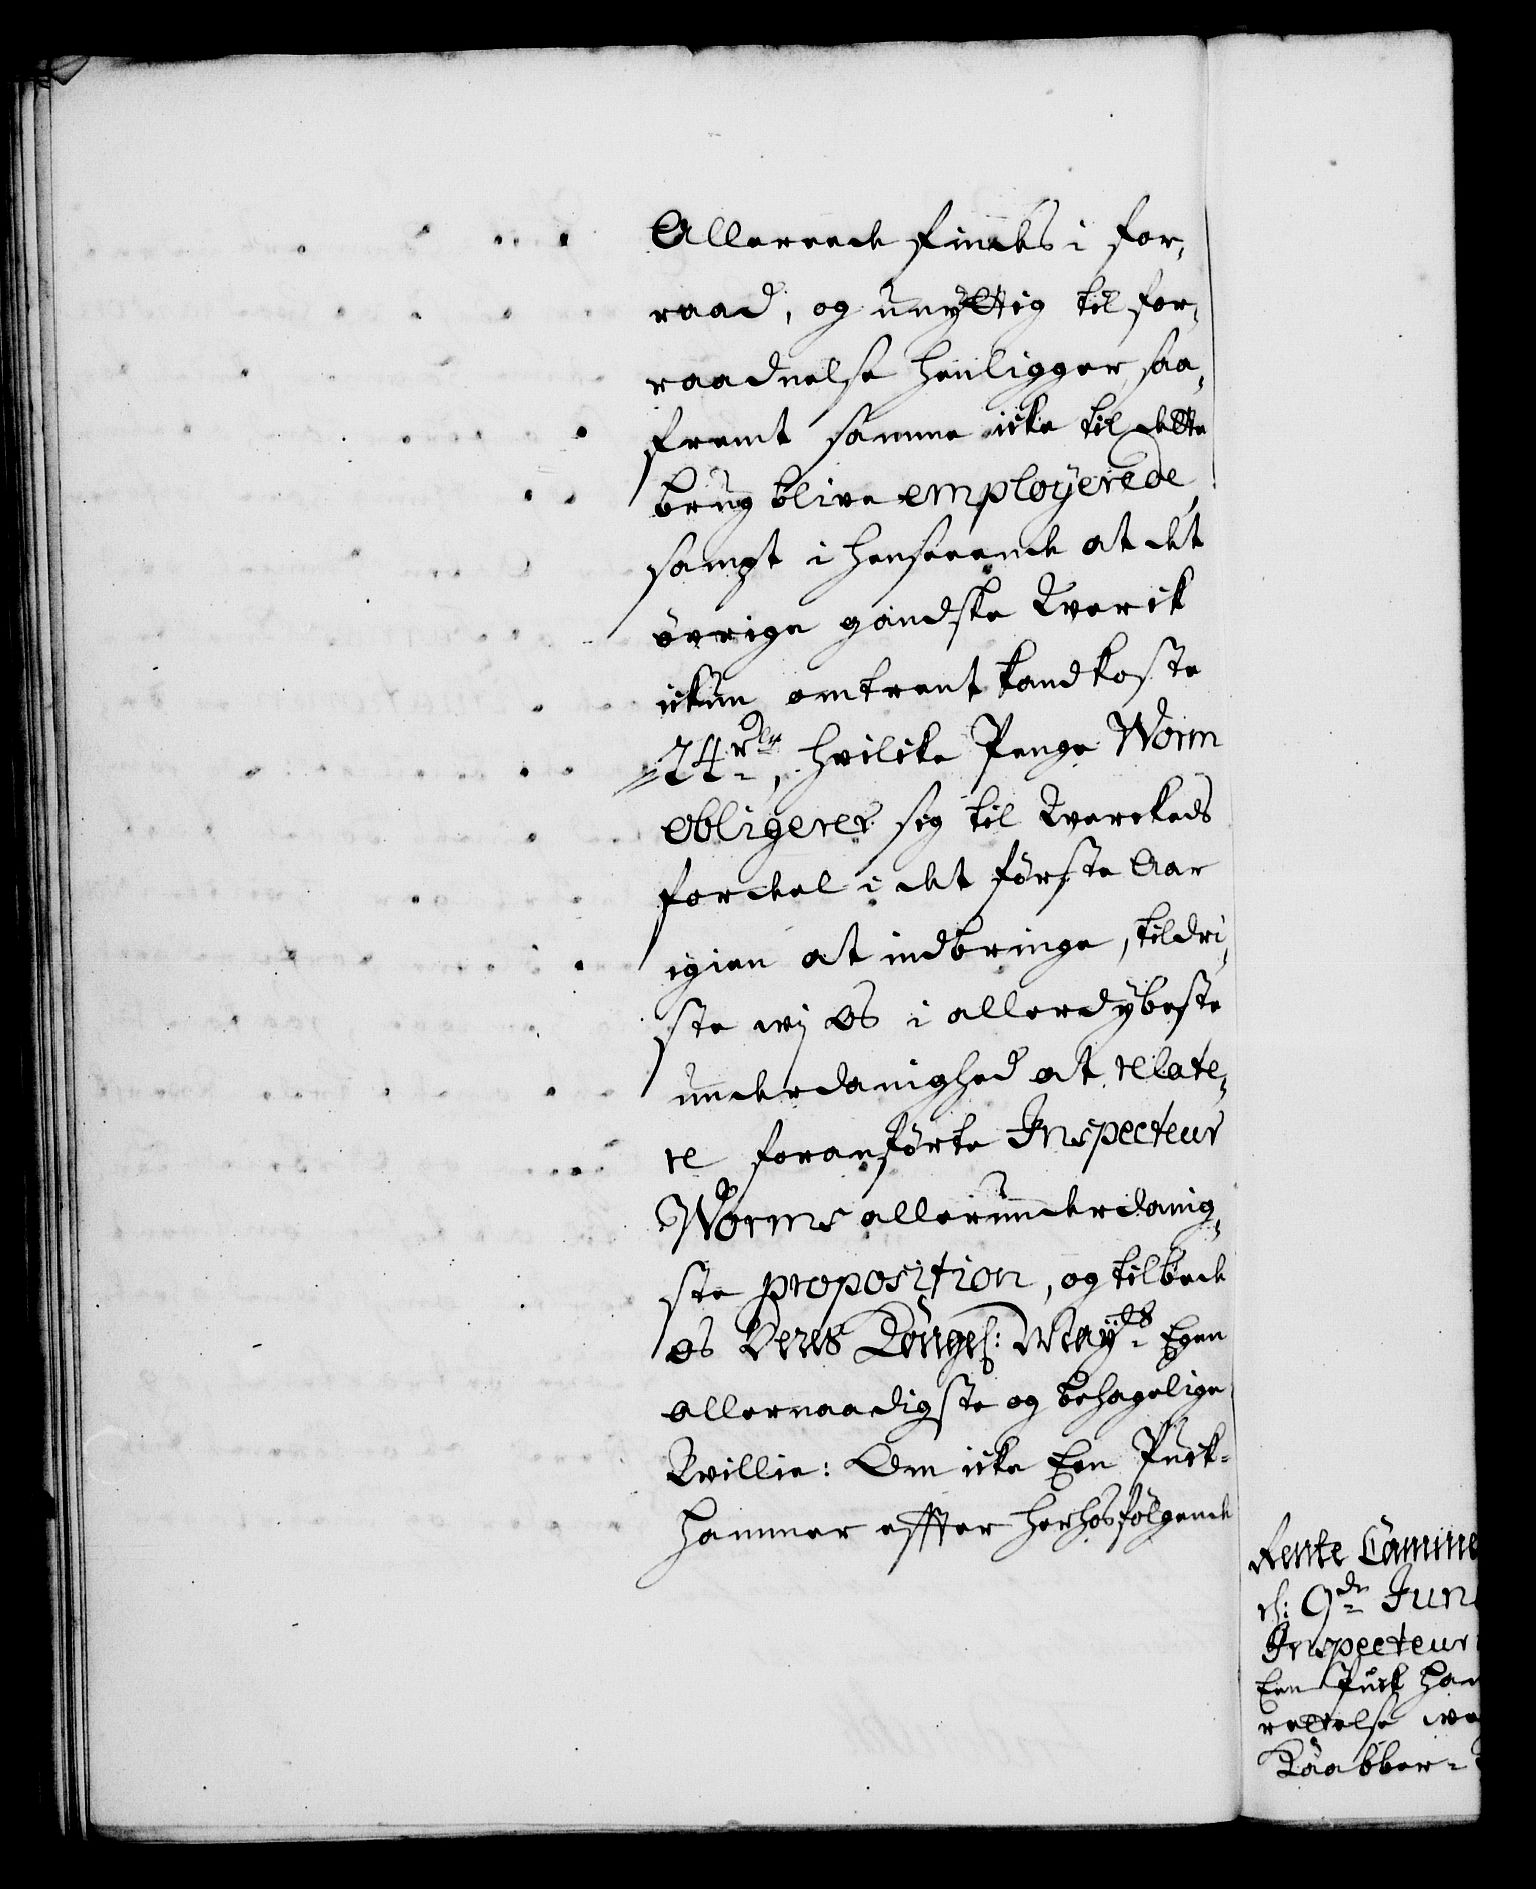 Allereede findes i for-
raad, og unyttig til for-
raadnelse henligger, saa-
fremt samme icke til dette
brug blive employerede,
sampt i henseende at det
övrige gandske Verck
ickun omtrent kand koste
24 rdlr, hvilcke Penge Worm
obligerer sig til Verckeds
fordeel i det förste Aar
igien at indbringe, tildri-
ste wj os i allerdybeste
underdanighed at relate-
re foranförte Inspecteur
Worms allerunderdanig-
ste proposition, og tilbede
os Deres Kongel: Mayts Egen
allernaadigste og behagelige
Villie: Om icke Een Puck-
hammer effter herhosfölgende
Rente Camme
d: 9de Jun
Inspecteur
Een Puck Ham
rettelse we
Kaabber-